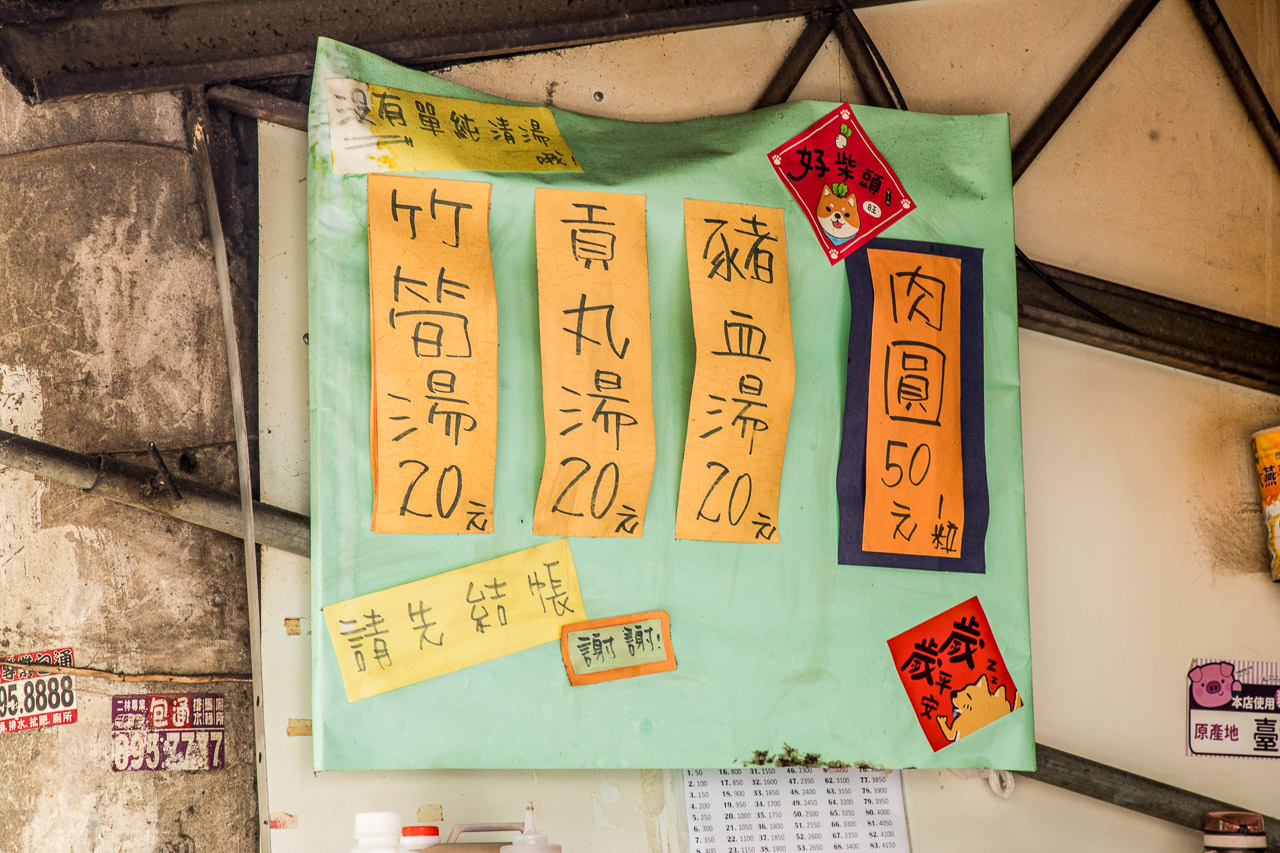 沒有單純清湯
哦!
竹筒湯20元
貢丸湯20元
豬血湯20元
肉圓50元
1粒
好柴頭
旺
請先結帳
謝謝!
歲歲平安
ZZZ
95.8888
排水.抽肥.廁所
二林專業
包通
排水
馬桶
廁所
本店使用
原產地
臺
燕
1. 50 16. 800 31. 1550 46. 2300
2. 100 17. 850 32. 1600 47. 2350 62. 3100 77. 3850
3. 150 18. 900 33. 1650 48. 2400 63. 3150 78. 3900
4. 200 19. 950 34. 1700 49. 2450 64. 3200 79. 3950
5. 250 20. 1000 35. 1750 50. 2500 65. 3250 80. 4000
6. 300 21. 1050 36. 1800 51. 2550 66. 3300 81. 4050
7. 350 22. 1100 37. 1850 52. 2600 67. 3350 82. 4100
8. 400 23. 1150 38. 1900 53. 2650 68. 3400 83. 4150